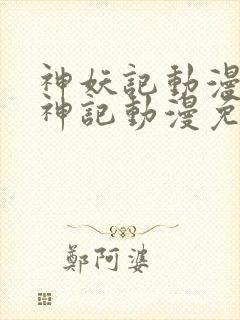 神妖記動漫
神記動漫免
鄭阿婆